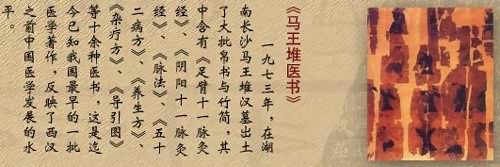 《马王堆医书》
一九七三年，在湖
南长沙马王堆汉墓出土
了大批帛书与竹简，其
中含有《足臂十一脉灸
经》、《阴阳十一脉灸
经》、《脉法》、《五十
二病方》、《养生方》、
《杂疗方》、《导引图》
等十余种医书，这是迄
今已知我国最早的一批
医学著作，反映了西汉
之前中国医学发展的水
平。